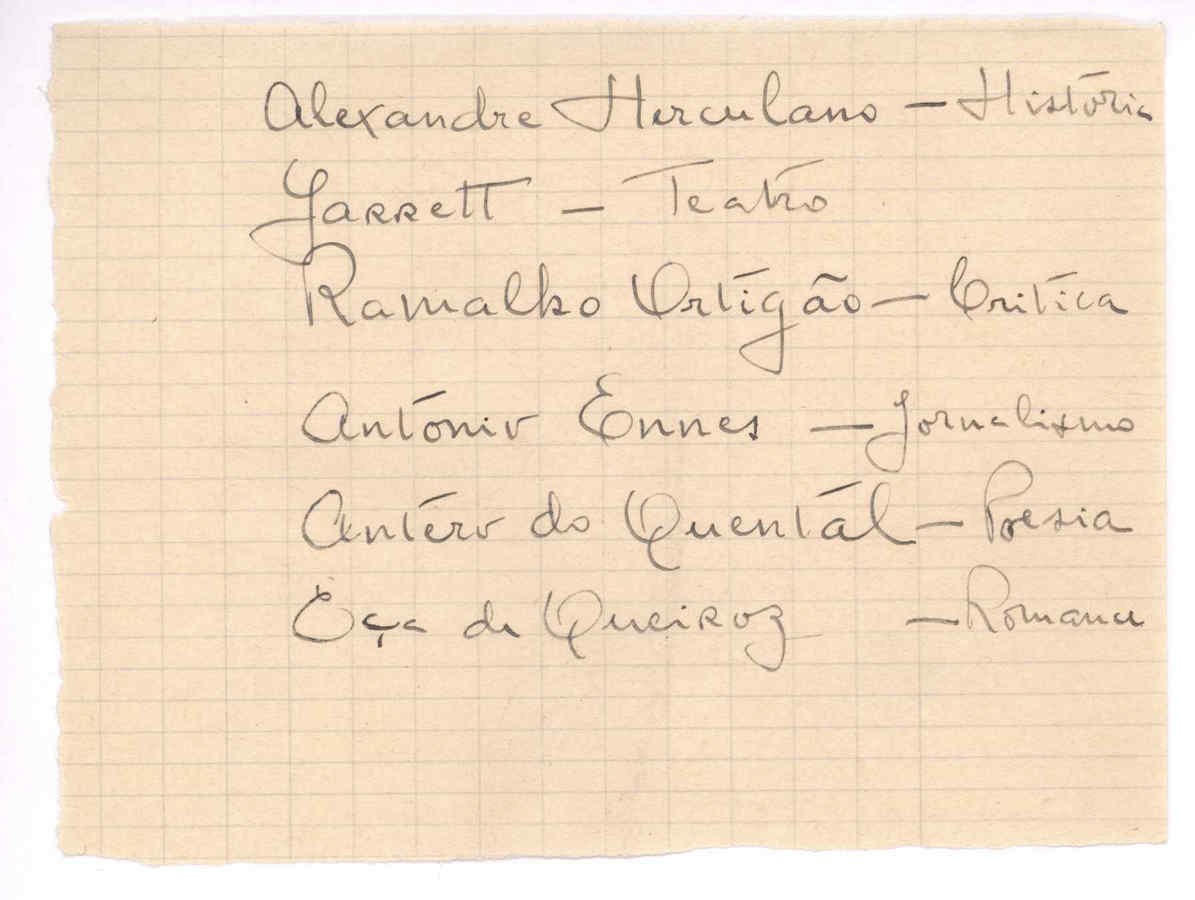 Alexandre Herculano — História
Garrett — Teatro
Ramalho Ortigão — Crítica
António Ennes — Jornalismo
Antéro do Quentál — Poesia
Eça de Queiroz — Romance